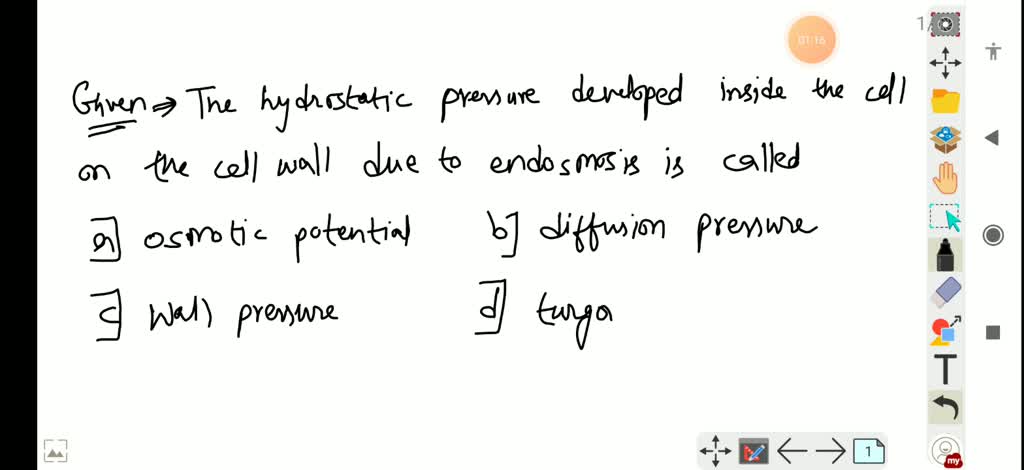 1/
01:16
Given ⇒ The hydrostatic pressure developed inside the cell
on the cell wall due to endosmosis is called
a] osmotic potential b] diffusion pressure
c] Wall pressure d] turgo
T
1
my